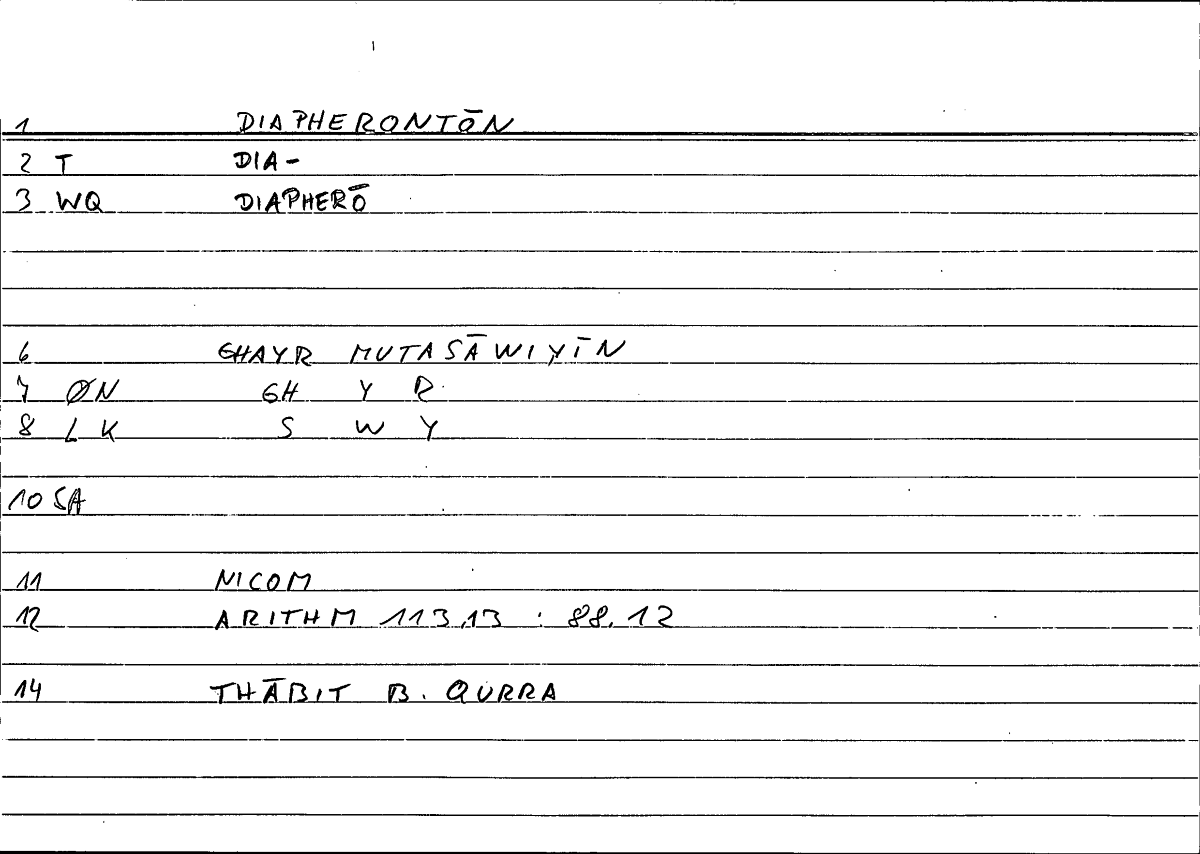 1 DIAPHERONTŌN
2 T DIA-
3 WQ DIAPHERŌ
6 GHAYR MUTASĀWIYĪN
7 ØN GH Y R
8 LK S W Y
10 SA
11 NICOM
12 ARITHM 113,13 : 88.12
14 THĀBIT B. QURRA